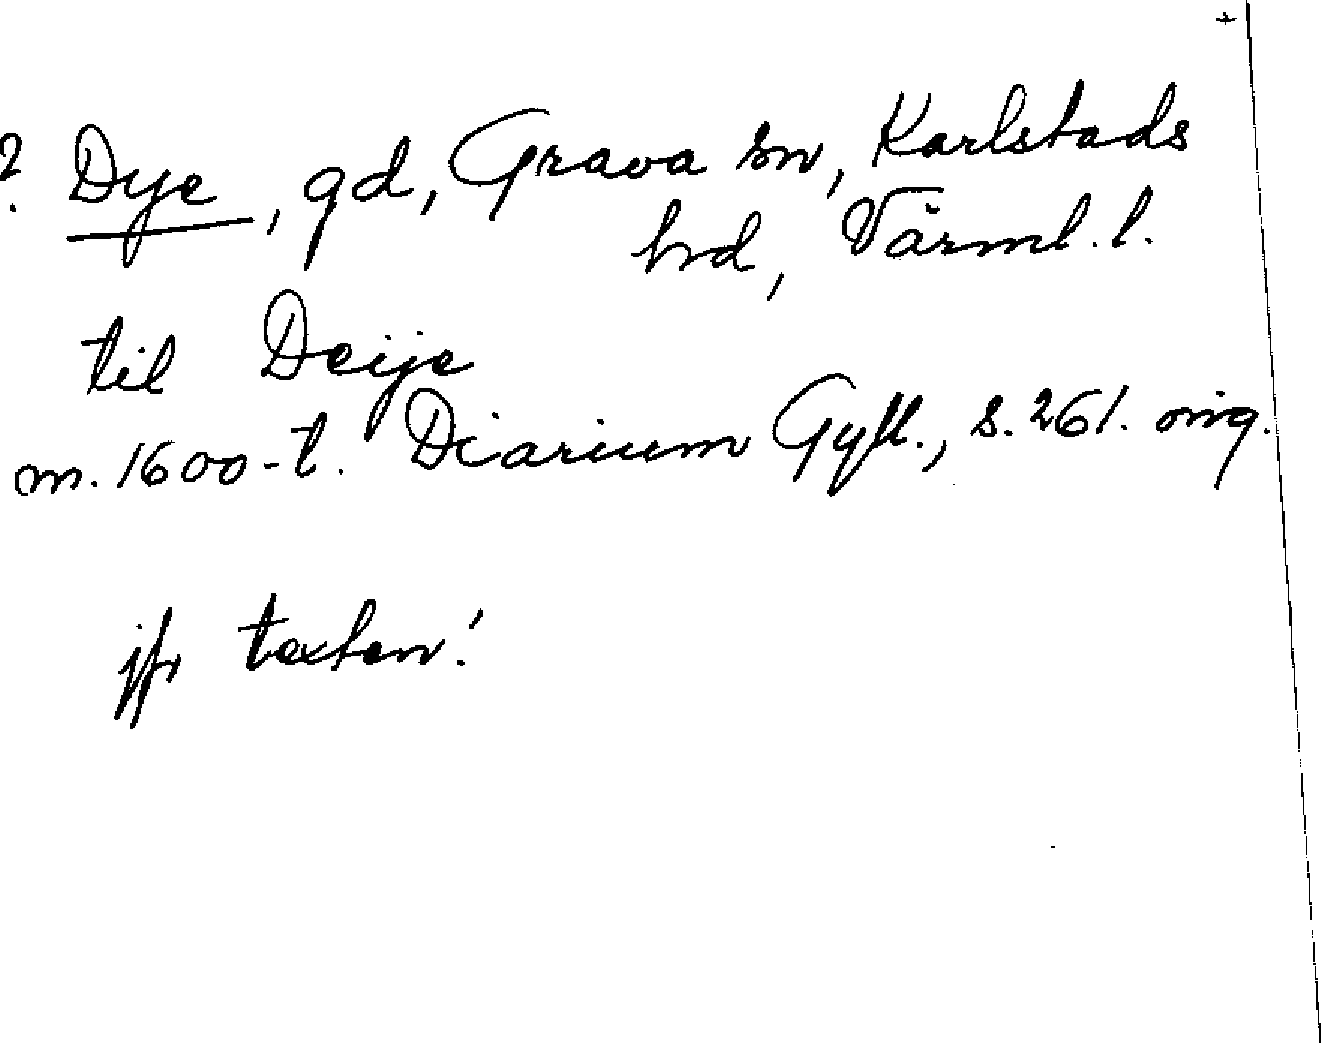 ? Dye, gd, Grava sn, Karlstads
hd, Värml. l.
til Deije
m. 1600-t. Diarium Gyll., s. 261. orig.
jfr texten!